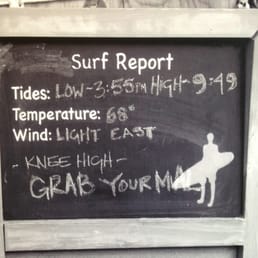 Surf Report
Tides: LOW-3:55PM HIGH-9:49
Temperature: 68°
Wind: LIGHT EAST
- KNEE HIGH -
GRAB YOUR MAL